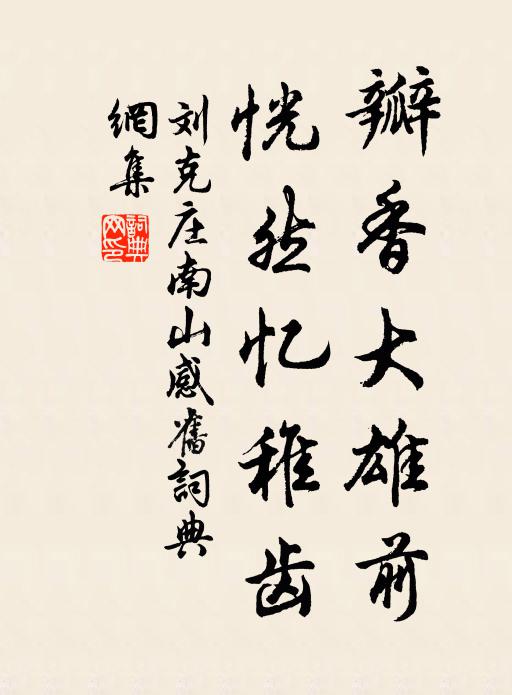 瓣香大雄前
恍然忆稚齿
刘克庄南山感舊詞典
網集
詞典网印